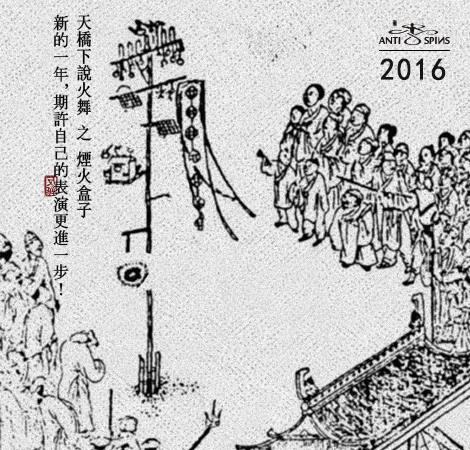 天橋下說火舞 之 煙火盒子
新的一年，期許自己的表演更進一步！
ANTI SPINS
2016